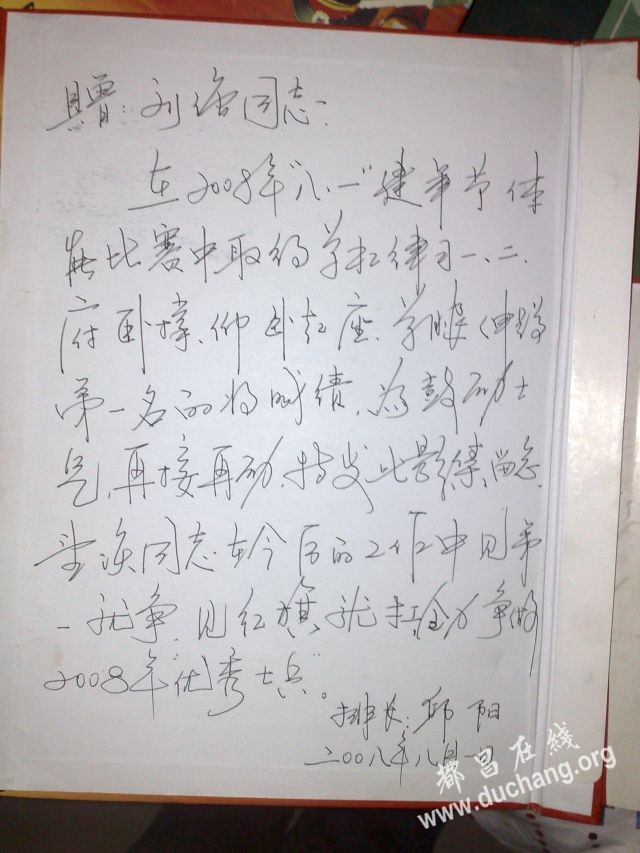 赠：刘 同志：
在2008年"八.一"建军节体
能比赛中取得单杠练习一、二.
俯卧撑、仰卧起座、单腿
第一名的好成绩，为鼓励士
兵，再接再励，特发此影集留念.
望 同志在今后的工作中见第
一就争，见红旗就扛，全力争做
2008年"优秀士兵"。
排长：邱阳
二00八年八月一日
都昌在线
www.duchang.org